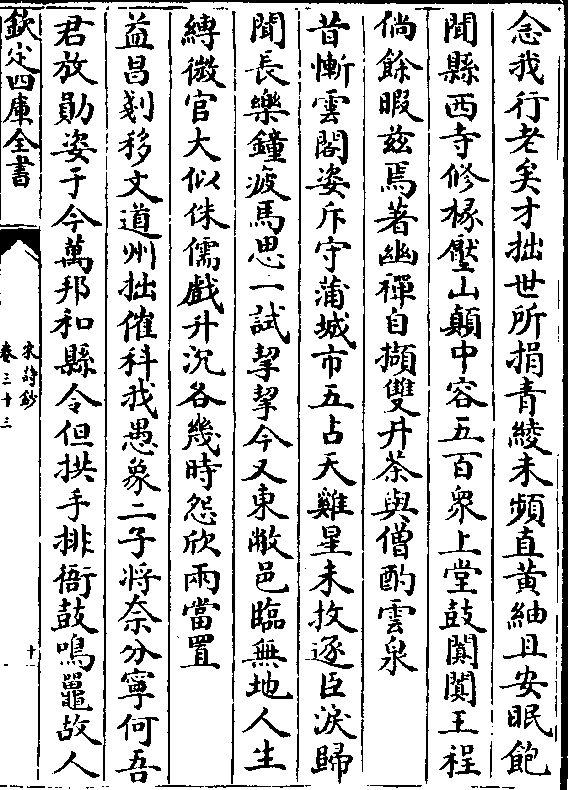 念我行老矣才拙世所捐青綾未頻直黄紬且安眠飽
聞縣西寺修椽壓山顛中容五百衆上堂鼓闐闐王程
倘餘暇兹焉著幽禪自擷雙井茶與僧酌雲泉
昔慚雲閣姿斥守蒲城市五占天雞星未放逐臣淚歸
聞長樂鐘疲馬思一試挈挈今又東敝邑臨無地人生
縛微官大似侏儒戲升沉各幾時怨欣兩當置
益昌剡移文道州拙催科我愚象二子将奈分寧何吾
君放勛姿于今萬邦和縣令但拱手排衙鼓鳴鼉故人
欽定四庫全書
宋詩鈔
卷三十三
十